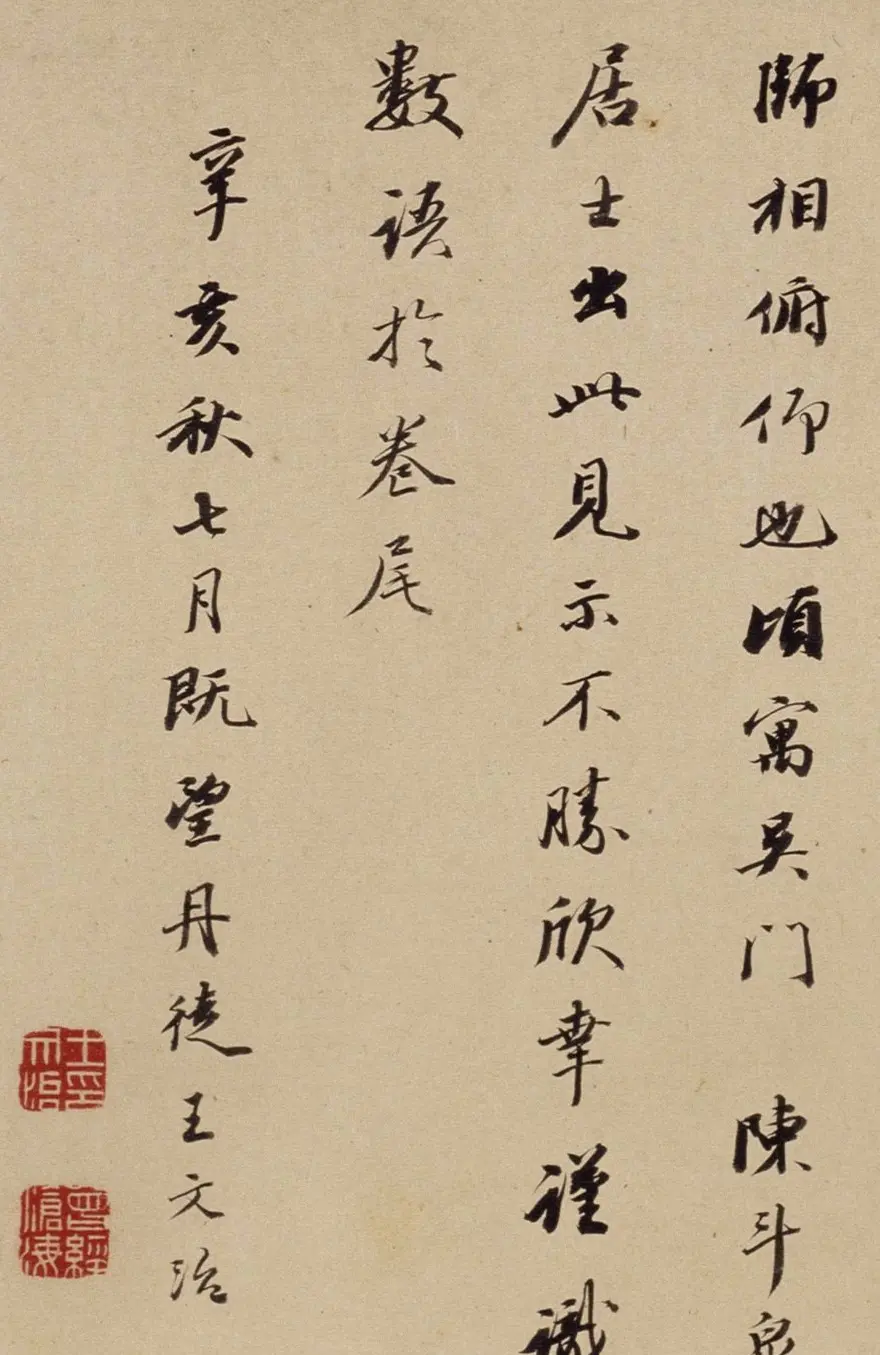 師相俯仰也頃寓吳門 陳斗泉
居士出此見示不勝欣幸謹識
數語於卷尾
辛亥秋七月既望丹徒王文治
王文治印
曾經滄海